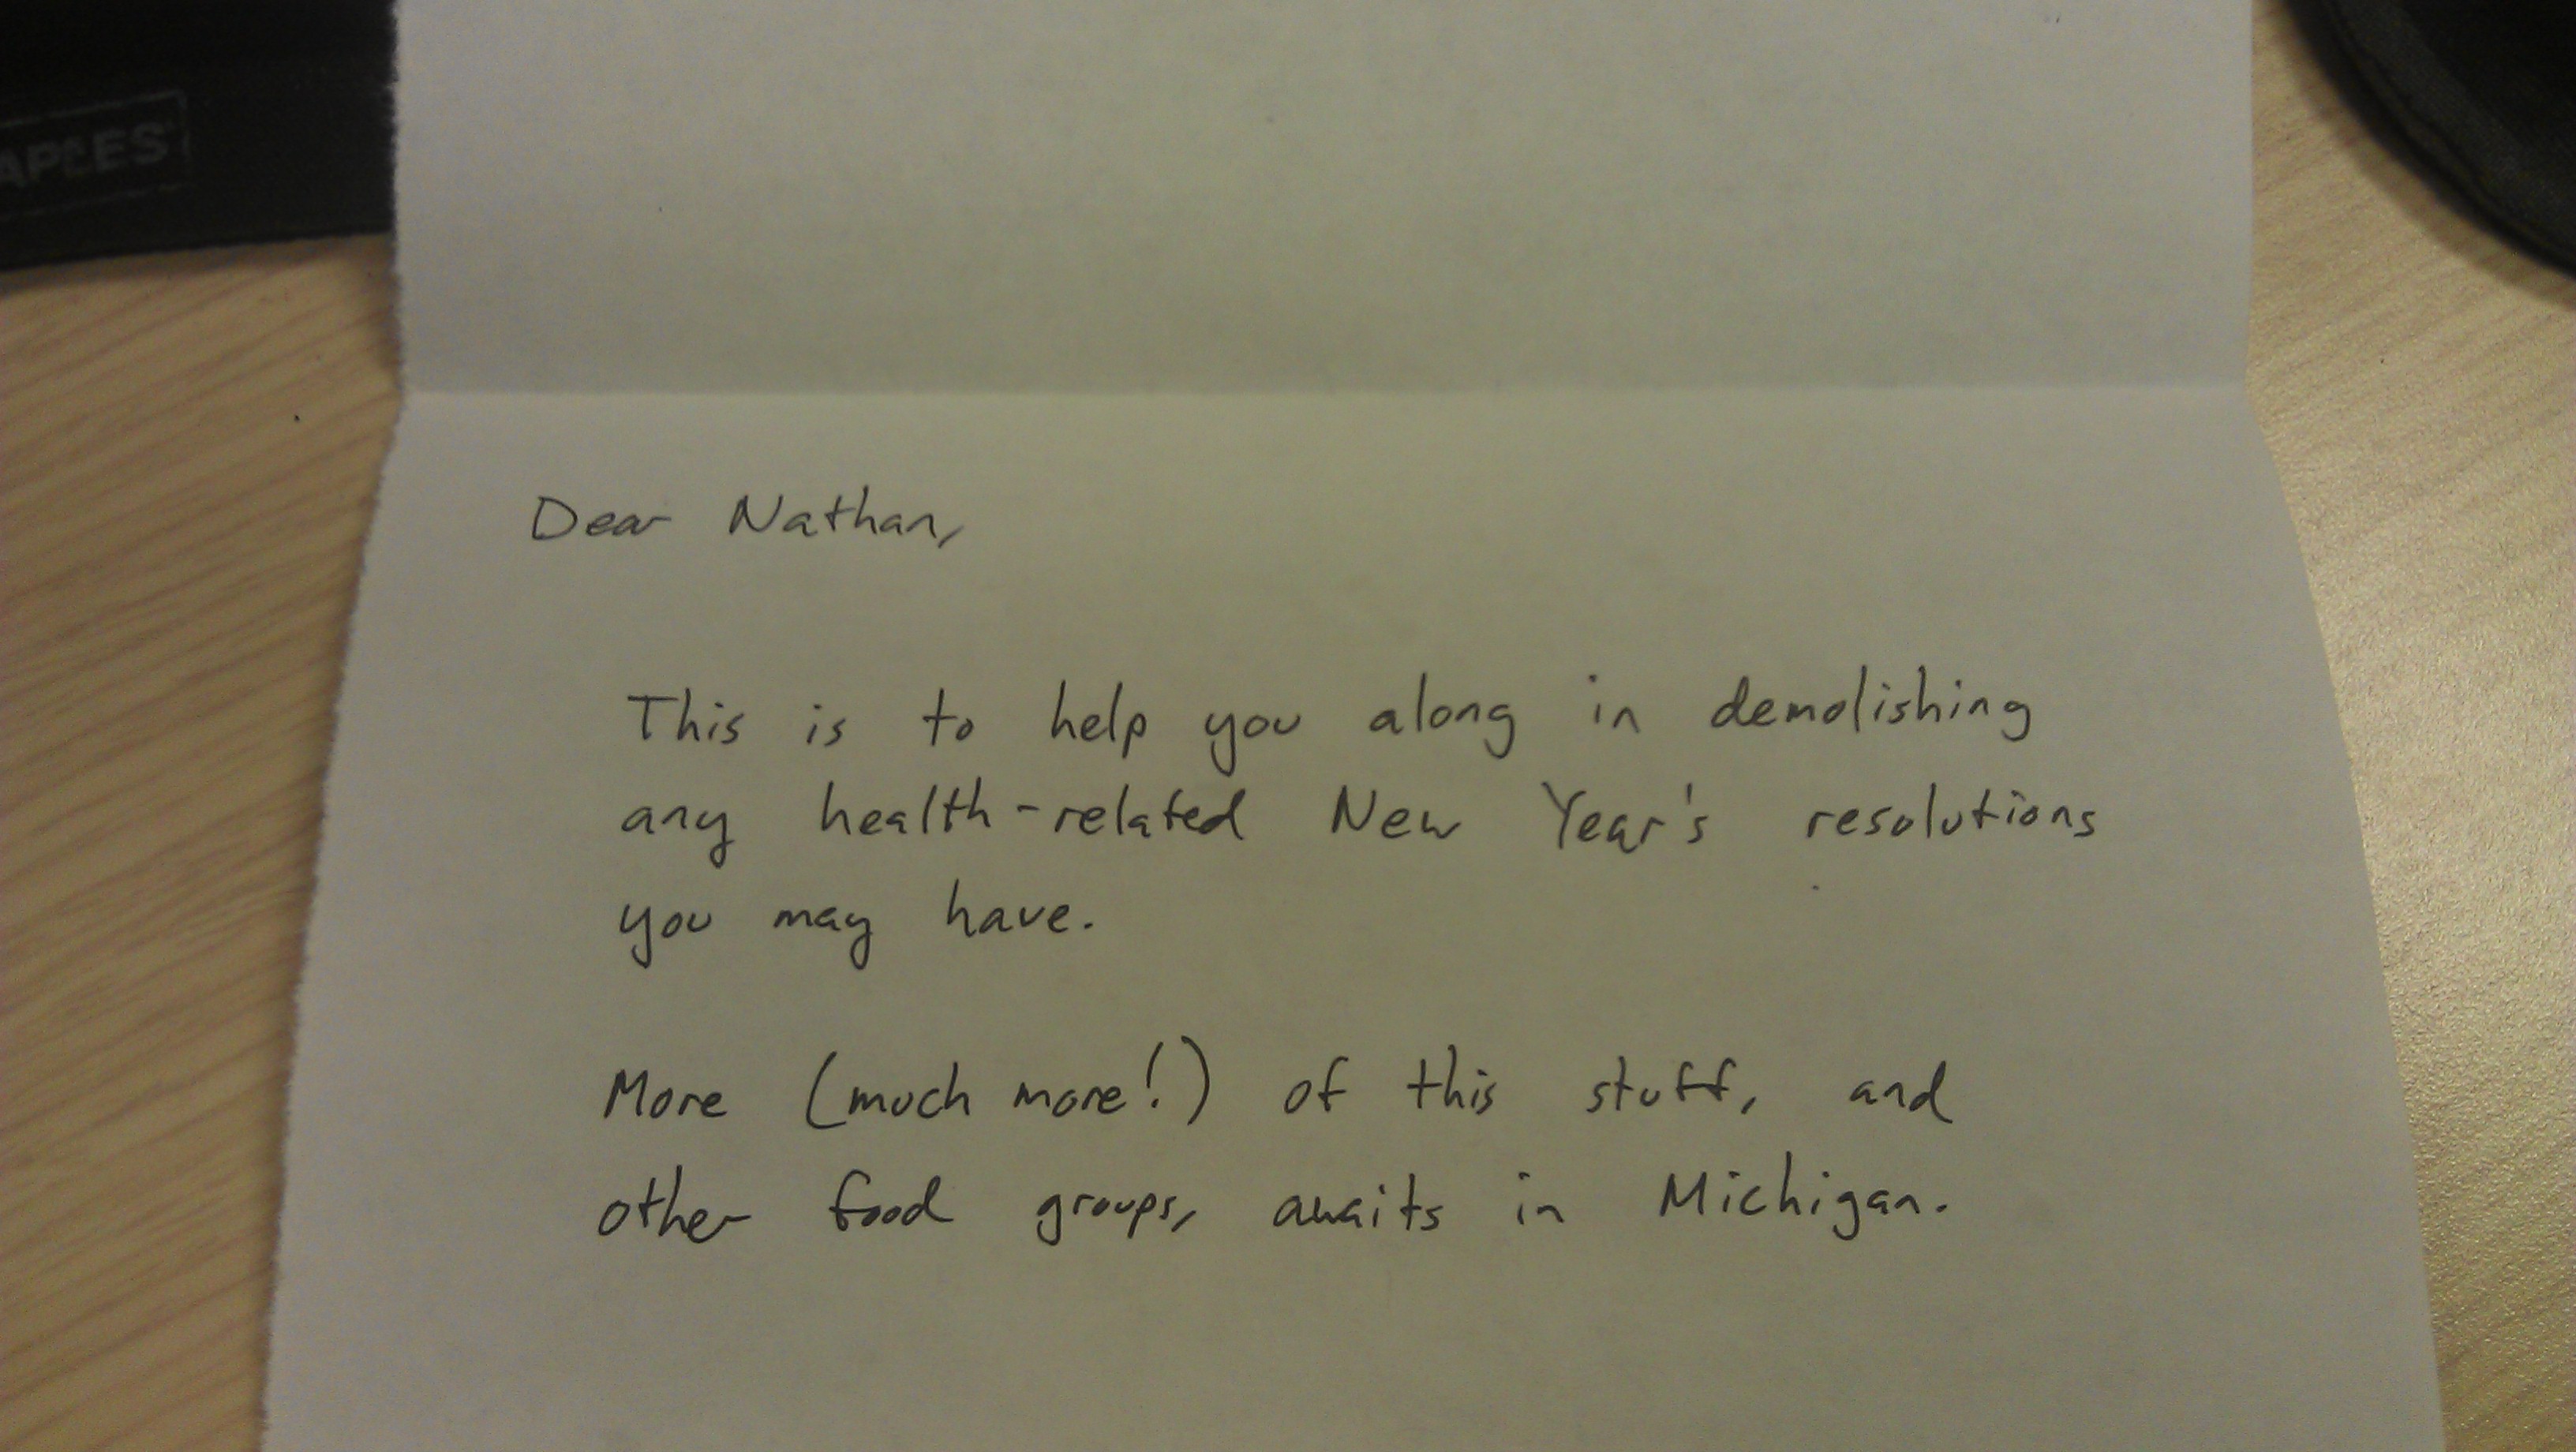 APLES
Dear Nathan,
This is to help you along in demolishing
any health-related New Year's resolutions
you may have.
More (much more!) of this stuff, and
other food groups, awaits in Michigan.